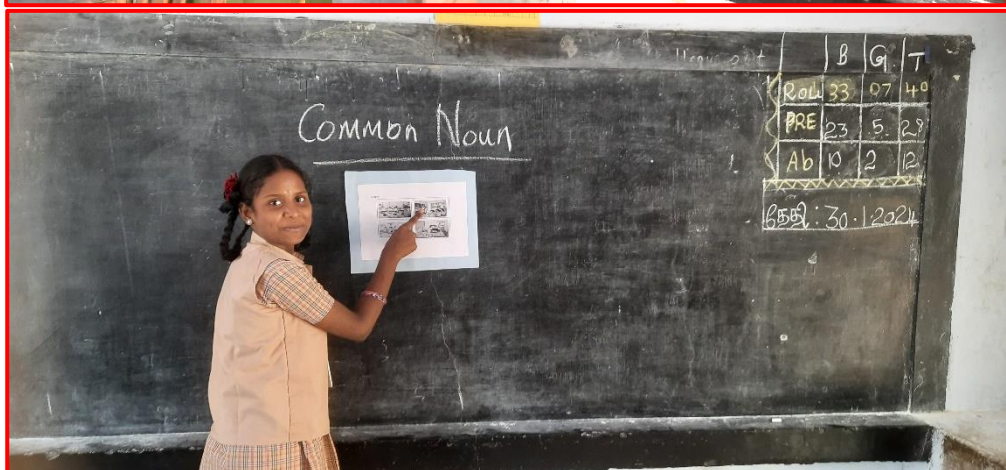 Common Noun
B G T
Roll 33 07 40
PRE 23 5 28
Ab 10 2 12
தேதி : 30.1.2024